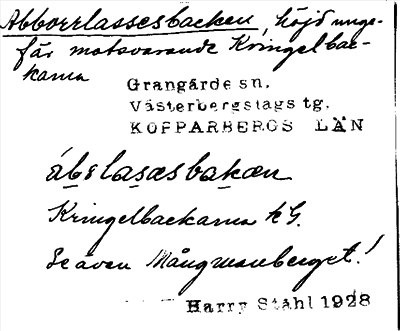 Abborrlassesbacken, höjd unge-
fär motsvarande Kringelbac-
karna
Grangärde sn.
Västerbergslags tg.
KOPPARBERGS LÄN
Kringelbackarna
Se även Mångmanberget!
Harry Ståhl 1928